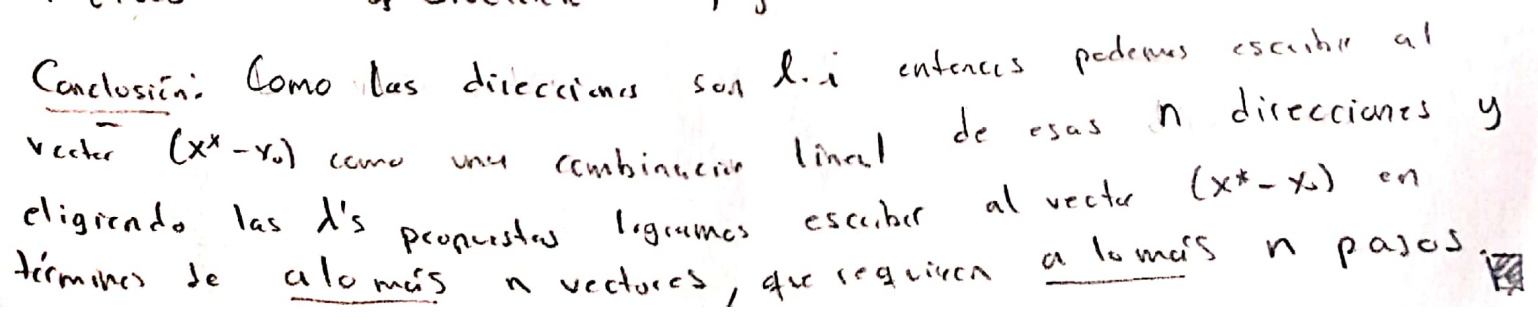 Conclusión: Como las direcciones son l.i entonces podemos escribir al
vector (x* - x₀) como una combinación lineal de esas n direcciones y
eligiendo las λ's propuestas logramos escribir al vector (x* - x₀) en
términos de a lo más n vectores, que requieren a lo más n pasos.